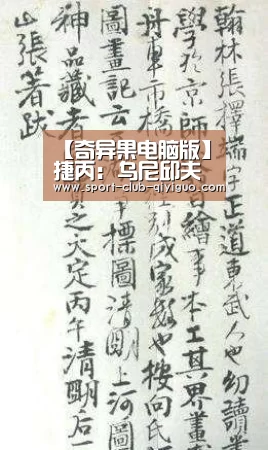 翰林張擇端字正道東武人也幼讀書
學於京師繪事本工其界畫
舟車市橋別成家數也按向氏
圖畫記云爭標圖清明上河圖
神品藏者之大定丙午清明后一
山張著跋
【奇异果电脑版】
捷丙：乌尼邱夫
www.sport-club-qiyiguo.com